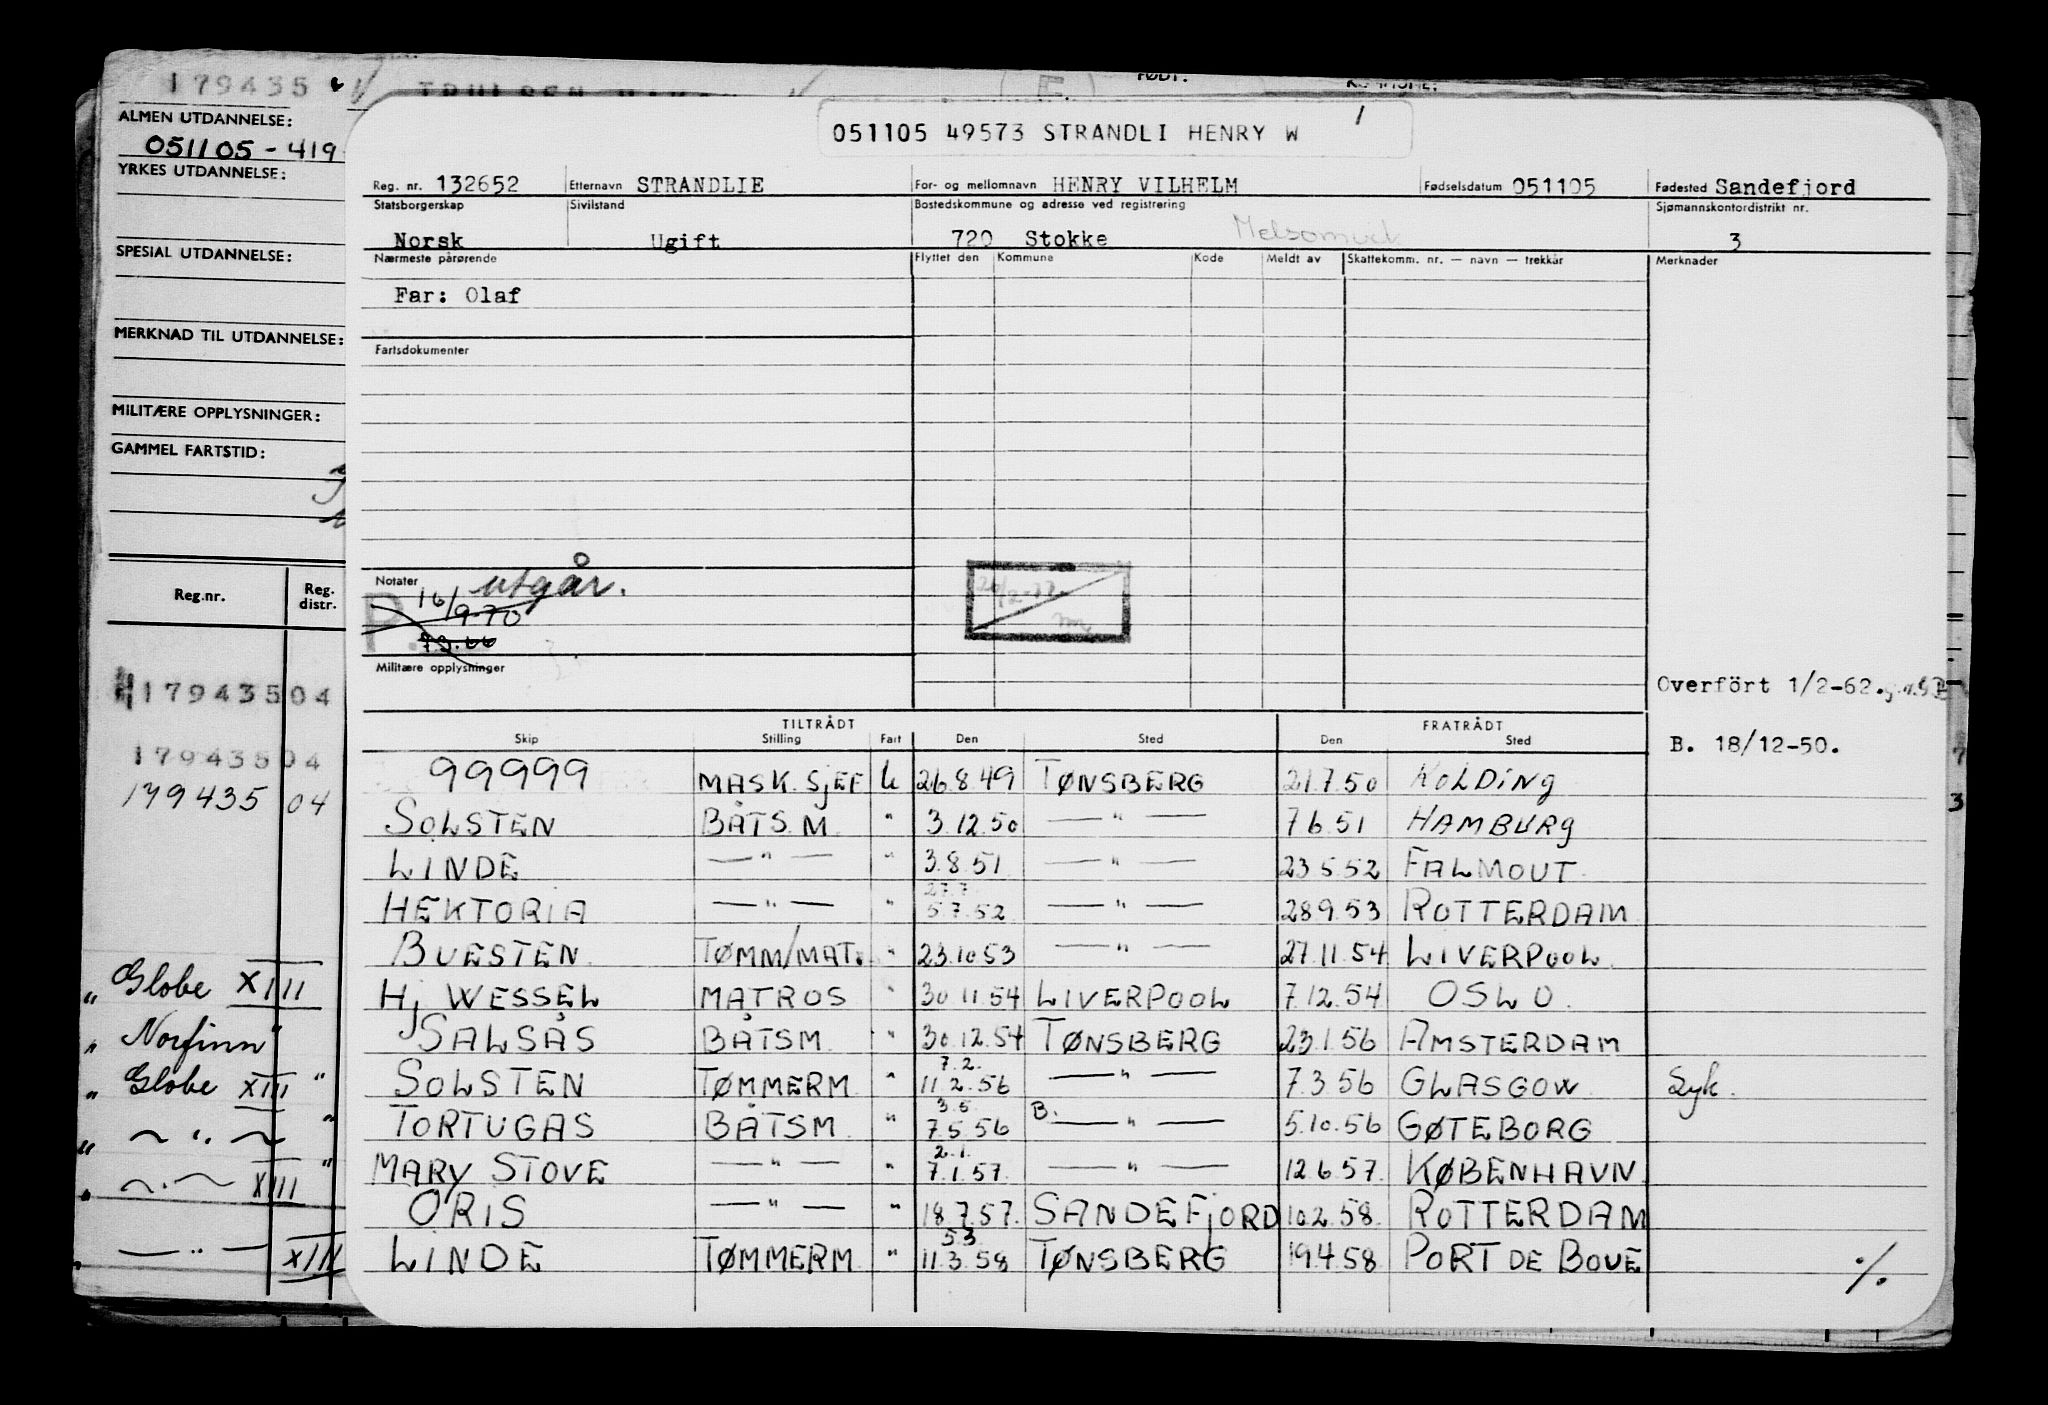 179435
FØDT:
KOMMUNE:
ALMEN UTDANNELSE:
051105 - 419
YRKES UTDANNELSE:
SPESIAL UTDANNELSE:
MERKNAD TIL UTDANNELSE:
MILITÆRE OPPLYSNINGER:
GAMMEL FARTSTID:
Reg.nr. Reg. distr.
179435 04
179435 04
179435 04
" Globe XIII
" Norfinn "
" Globe XIII "
" ~ " ~ "
" ~ " ~ XIII "
— " — XIII
1
051105 49573 STRANDLI HENRY W
Reg. nr. 132652 Etternavn STRANDLIE For- og mellomnavn HENRY VILHELM Fødselsdatum 051105 Fødested Sandefjord
Statsborgerskap Sivilstand Bostedskommune og adresse ved registrering Sjømannskontordistrikt nr.
Norsk Ugift 720 Stokke Melsomvik 3
Nærmeste pårørende Flyttet den Kommune Kode Meldt av Skattekomm. nr. — navn — trekkår Merknader
Far: Olaf
Fartsdokumenter
Notater
utgår.
16/9-70
Militære opplysninger
Overført 1/2-62.
B. 18/12-50.
TILTRÅDT FRATRÅDT
Skip Stilling Fart Den Sted Den Sted
99999 MASK.SJEF U 26.8.49 TØNSBERG 21.7.50 KOLDING
SOLSTEN BÅTSM " 3.12.50 — " — 7.6.51 HAMBURG
LINDE — " — " 3.8.51 — " — 23.5.52 FALMOUT.
27.7.
HEKTORIA — " — " 5.7.52 — " — 28.9.53 ROTTERDAM
BUESTEN TØMM/MAT. " 23.10.53 — " — 27.11.54 LIVERPOOL
Hj WESSEL MATROS " 30.11.54 LIVERPOOL 7.12.54 OSLO.
SALSÅS BÅTSM " 30.12.54 TØNSBERG 23.1.56 AMSTERDAM
7.2.
SOLSTEN TØMMERM " 11.2.56 — " — 7.3.56 GLASGOW Syk.
3.5.
TORTUGAS BÅTSM " 7.5.56 B. — " — 5.10.56 GØTEBORG
2.1.
MARY STOVE — " — " 7.1.57. — " — 12.6.57. KØBENHAVN
ORIS — " — " 18.7.57. SANDEFJORD 10.2.58. ROTTERDAM
5.3
LINDE TØMMERM " 11.3.58 TØNSBERG 19.4.58 PORT DE BOUE
·/.